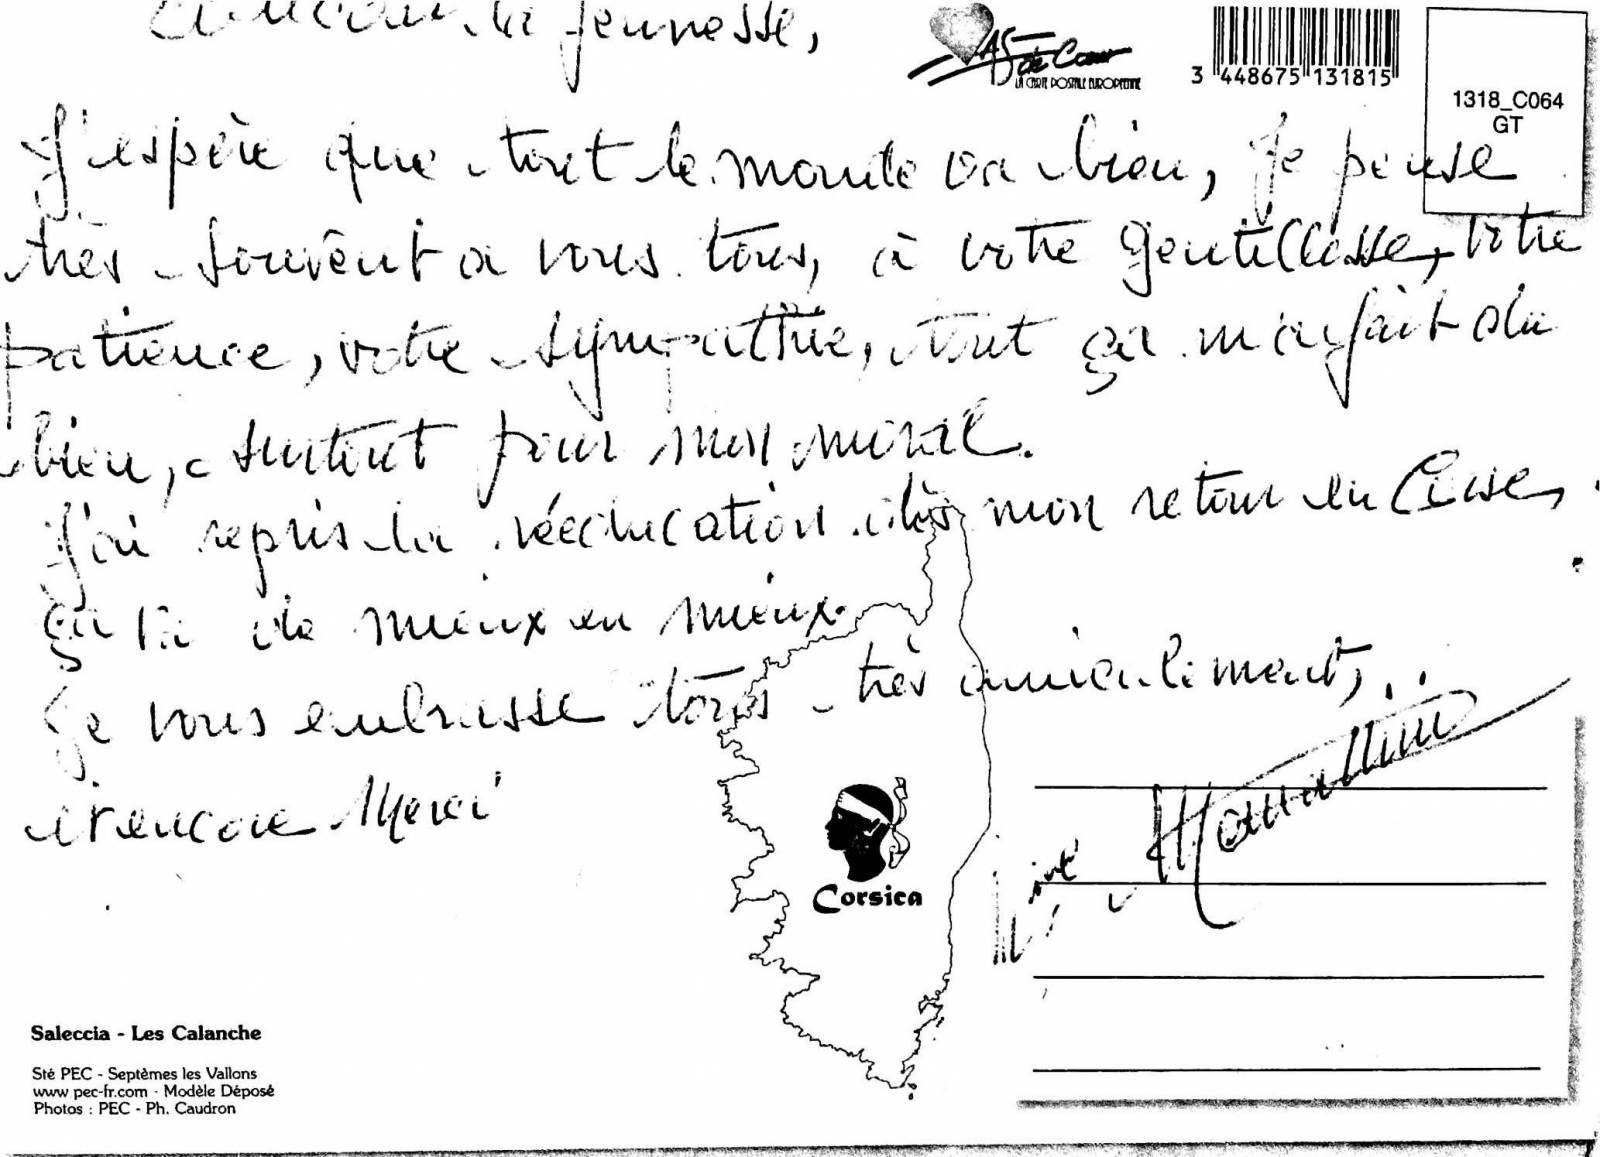 Coucou la jeunesse,
AS de Cœur
LA CARTE POSTALE EUROPEENNE
3 448675 131815
1318_C064
GT
J'espère que tout le monde va bien, Je pense
très souvent a vous tous, à votre gentillesse, votre
patience, votre sympathie, tout ça m'a fait du
bien, surtout pour mon moral.
J'ai repris la rééducation dès mon retour en Corse,
ça va de mieux en mieux.
Je vous embrasse tous très amicalement,
et encore Merci
Corsica
Saleccia - Les Calanche
Sté PEC - Septèmes les Vallons
www pec-fr.com - Modèle Déposé
Photos : PEC - Ph. Caudron